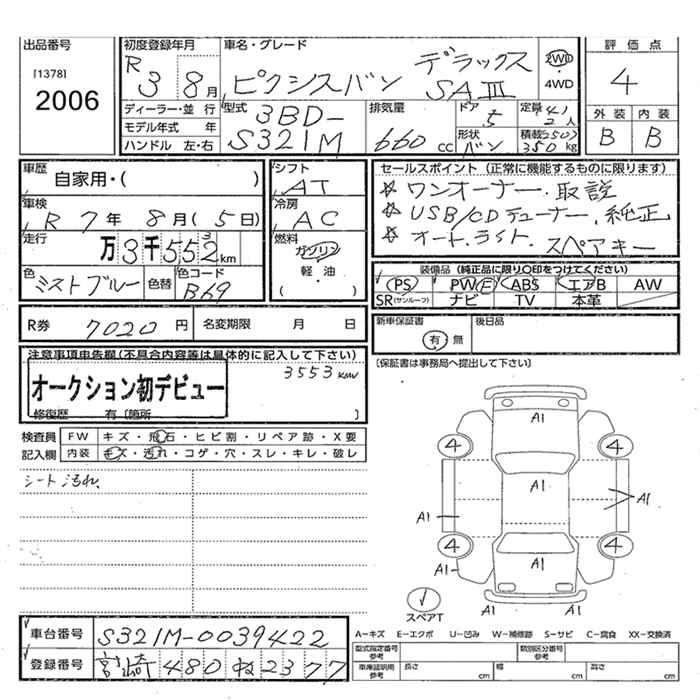 出品番号
[1378]
2006
初度登録年月
R 3年 8月
車名・グレード
ピクシスバン デラックス SAⅢ
2WD
・
4WD
評価点
4
外装 内装
B B
ディーラー・並行
モデル年式 年
ハンドル 左・右
型式
3BD-
S321M
排気量
660 cc
ドア
5
形状
バン
定員
2人
積載
350kg
車歴
自家用・( )
車検
R 7年 8月(5日)
走行
万3千552km
色
ミストブルー
色替
色コード
B69
シフト
AT
冷房
AC
燃料
ガソリン
・
軽・油
( )
セールスポイント(正常に機能するものに限ります)
☆ ワンオーナー.取説
☆ USB/CDチューナー.純正
☆ オートライト. スペアキー
装備品(純正品に限り○印をつけてください)
PS PW(F) ABS エアB AW
SR(サンルーフ) ナビ TV 本革
R券 7020円 名変期限 月 日
新車保証書
有・無
後日品
(保証書は事務局へ提出して下さい)
注意事項申告欄(不具合内容等は具体的に記入して下さい)
3553km
オークション初デビュー
修復歴 有〔箇所 〕
検査員 FW キズ・飛石・ヒビ割・リペア跡・X要
記入欄 内装 キズ・汚れ・コゲ・穴・スレ・キレ・破レ
シート汚れ
A1
4 4
A1
A1
A1
4 4
A1
A1
スペアT
A-キズ E-エクボ U-凹み W-補修跡 S-サビ C-腐食 XX-交換済
車台番号 S321M-0039422
登録番号 宮崎 480 ね 2377
型式指定番号
参考
類別区分番号
参考
車庫証明用
参考
長さ cm 幅 cm 高さ cm